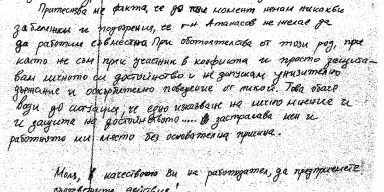 Притества не факта, че до този момент нямам никакви
забележки и подозрения, че г-н Атанасов не желае да
да работим съвместно. При обстоятелства от този род, при
които не съм пряк участник в конфликта и просто защита-
вам личното си достойнство и не допускам унизително
държание и оскърбително поведение от никого. Това обаче
води до ситуация, че едно изказване на лично мнение и
и защита на достойнството..... застрашава мен и
работното ми място без основателна причина.
Моля, в качеството Ви на работодател, да предприемете
съответните действия!